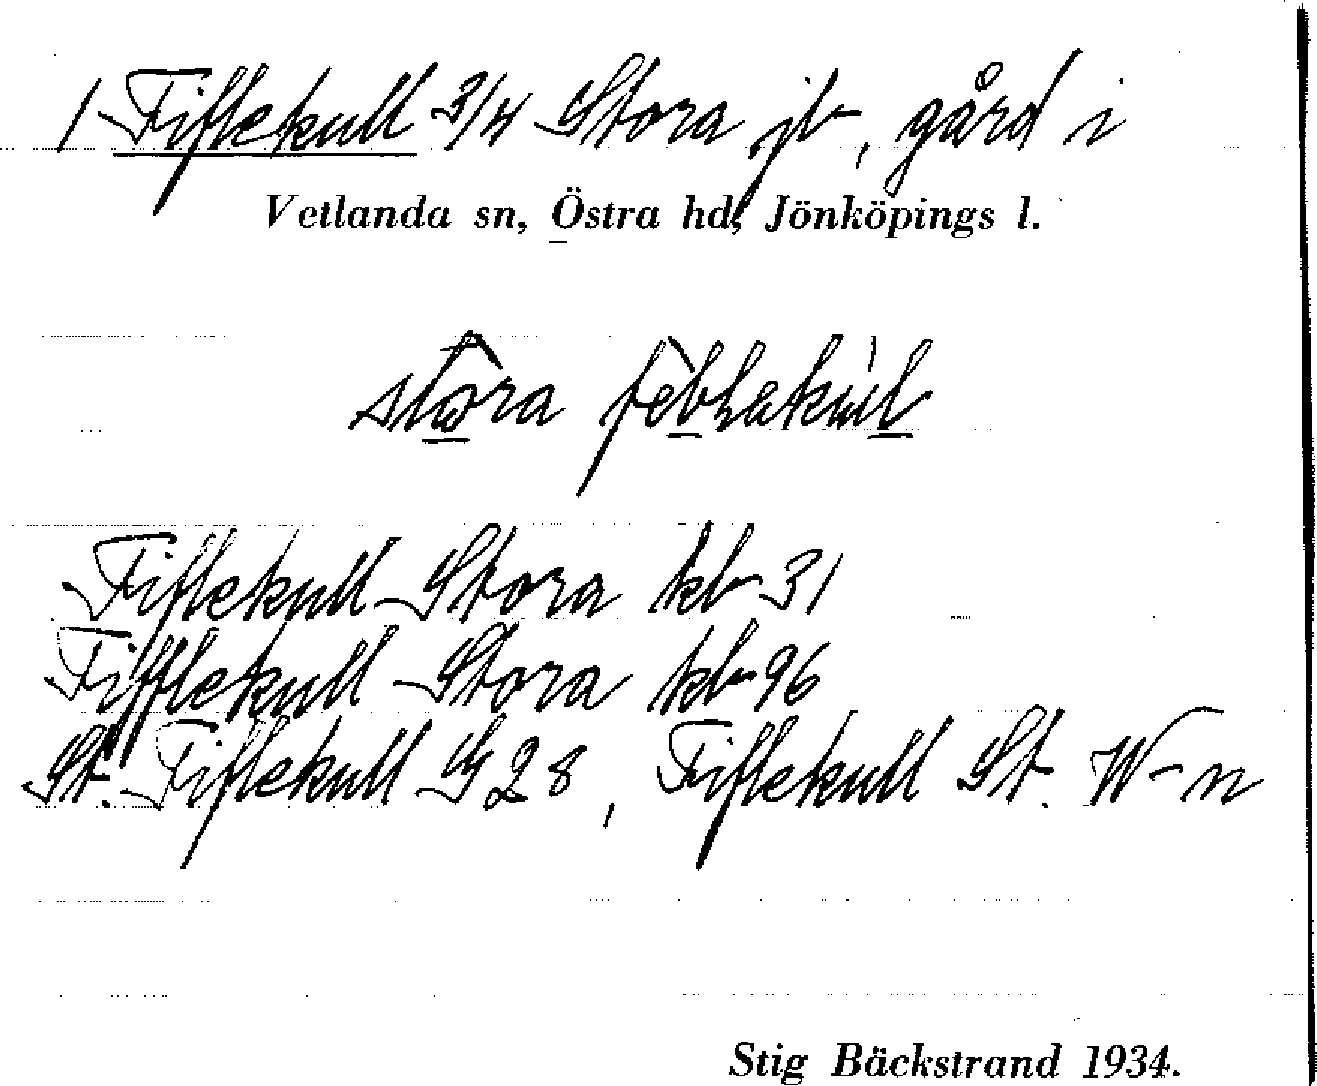 1 Fiflekull 3/4 Stora jb, gård i
Vetlanda sn, Östra hd, Jönköpings l.
stôra
Fiflekull Stora kb 31
Fifflekull Stora kb 96
St. Fiflekull G 28, Fiflekull St. W-n
Stig Bäckstrand 1934.